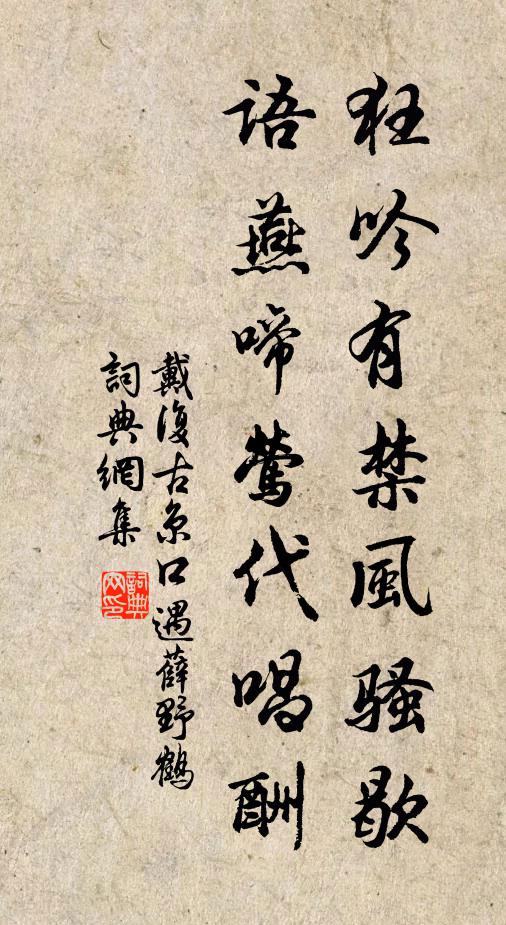 狂吟有禁風骚歇
語燕啼鶯代唱酬
戴復古京口遇薛野鶴
詞典網集
詞典
网印